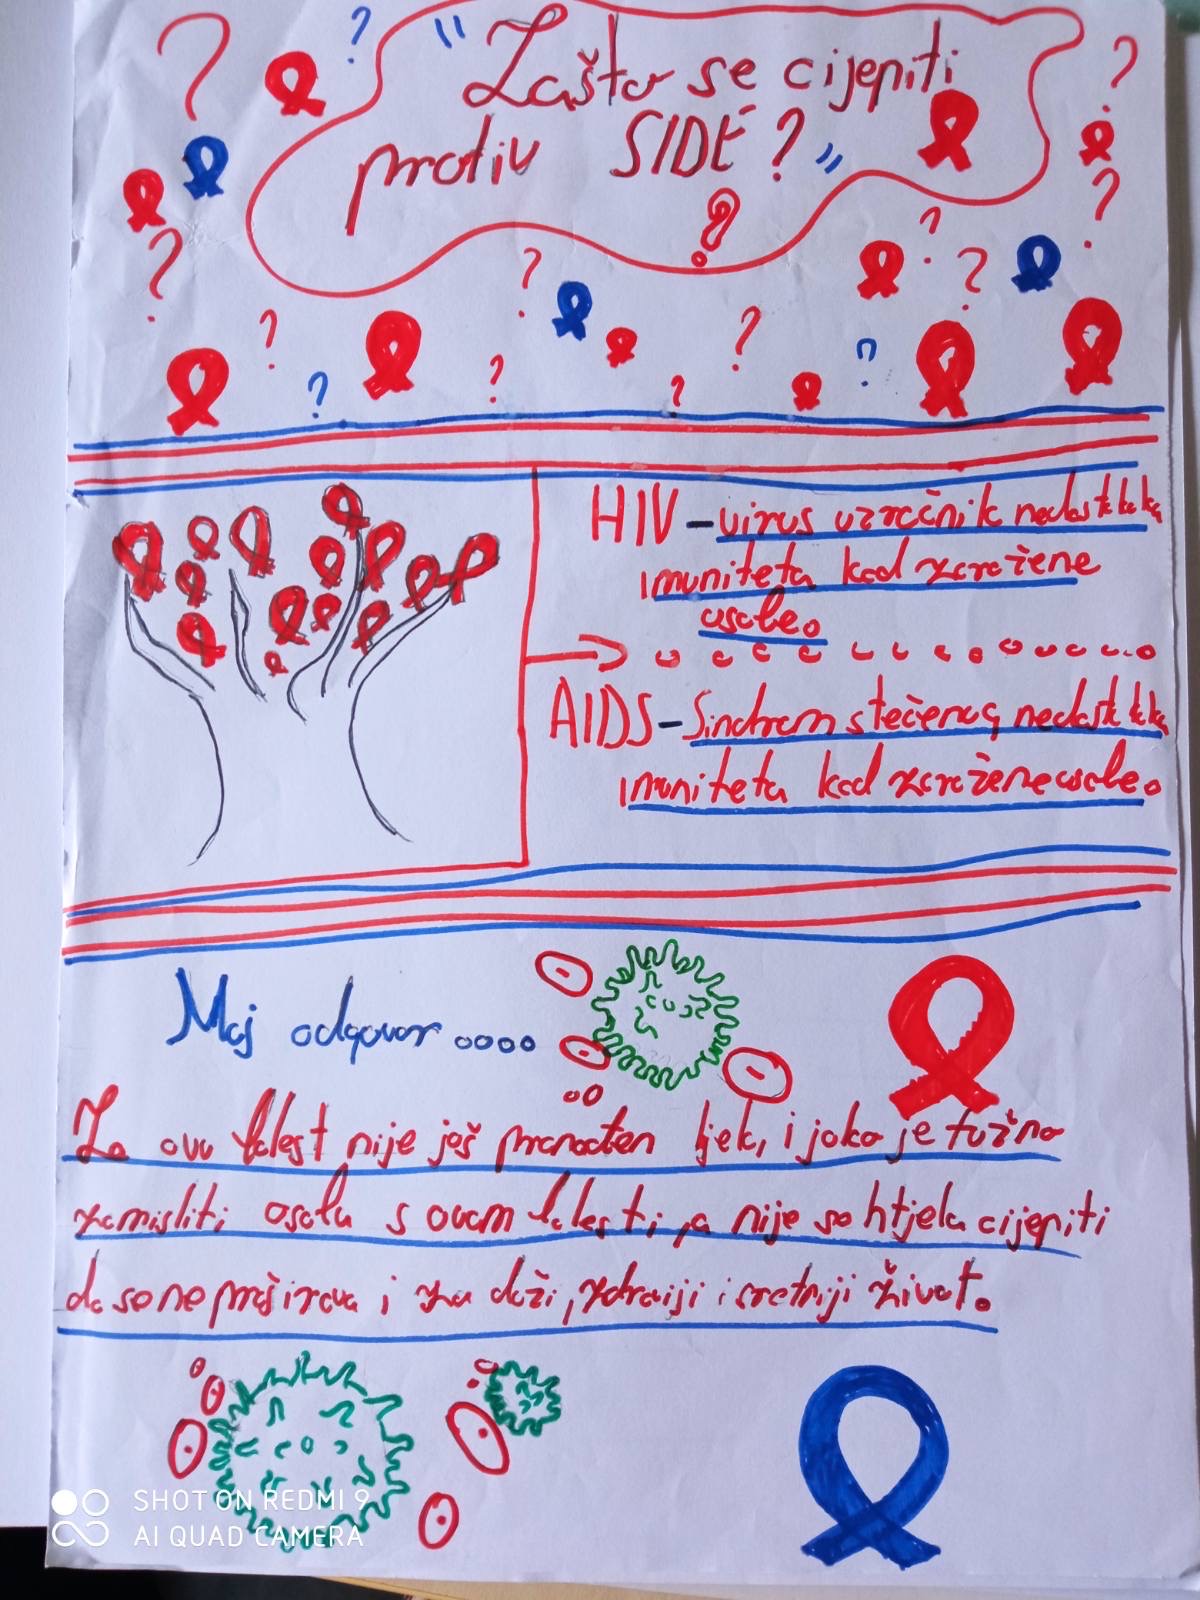 "Zašto se cijepiti
protiv SIDE?"
HIV-virus uzročnik nedostatka
imuniteta kod zaražene
osobe.
AIDS-Sindrom stečenog nedostatka
imuniteta kod zaražene osobe.
Moj odgovor....
Za ovu bolest nije još pronađen ljek, i jako je tužno
zamisliti osobu s ovom bolesti, a nije se htjela cijepiti
da se ne proširava i za duži, zdraviji i sretniji život.
SHOT ON REDMI 9
AI QUAD CAMERA